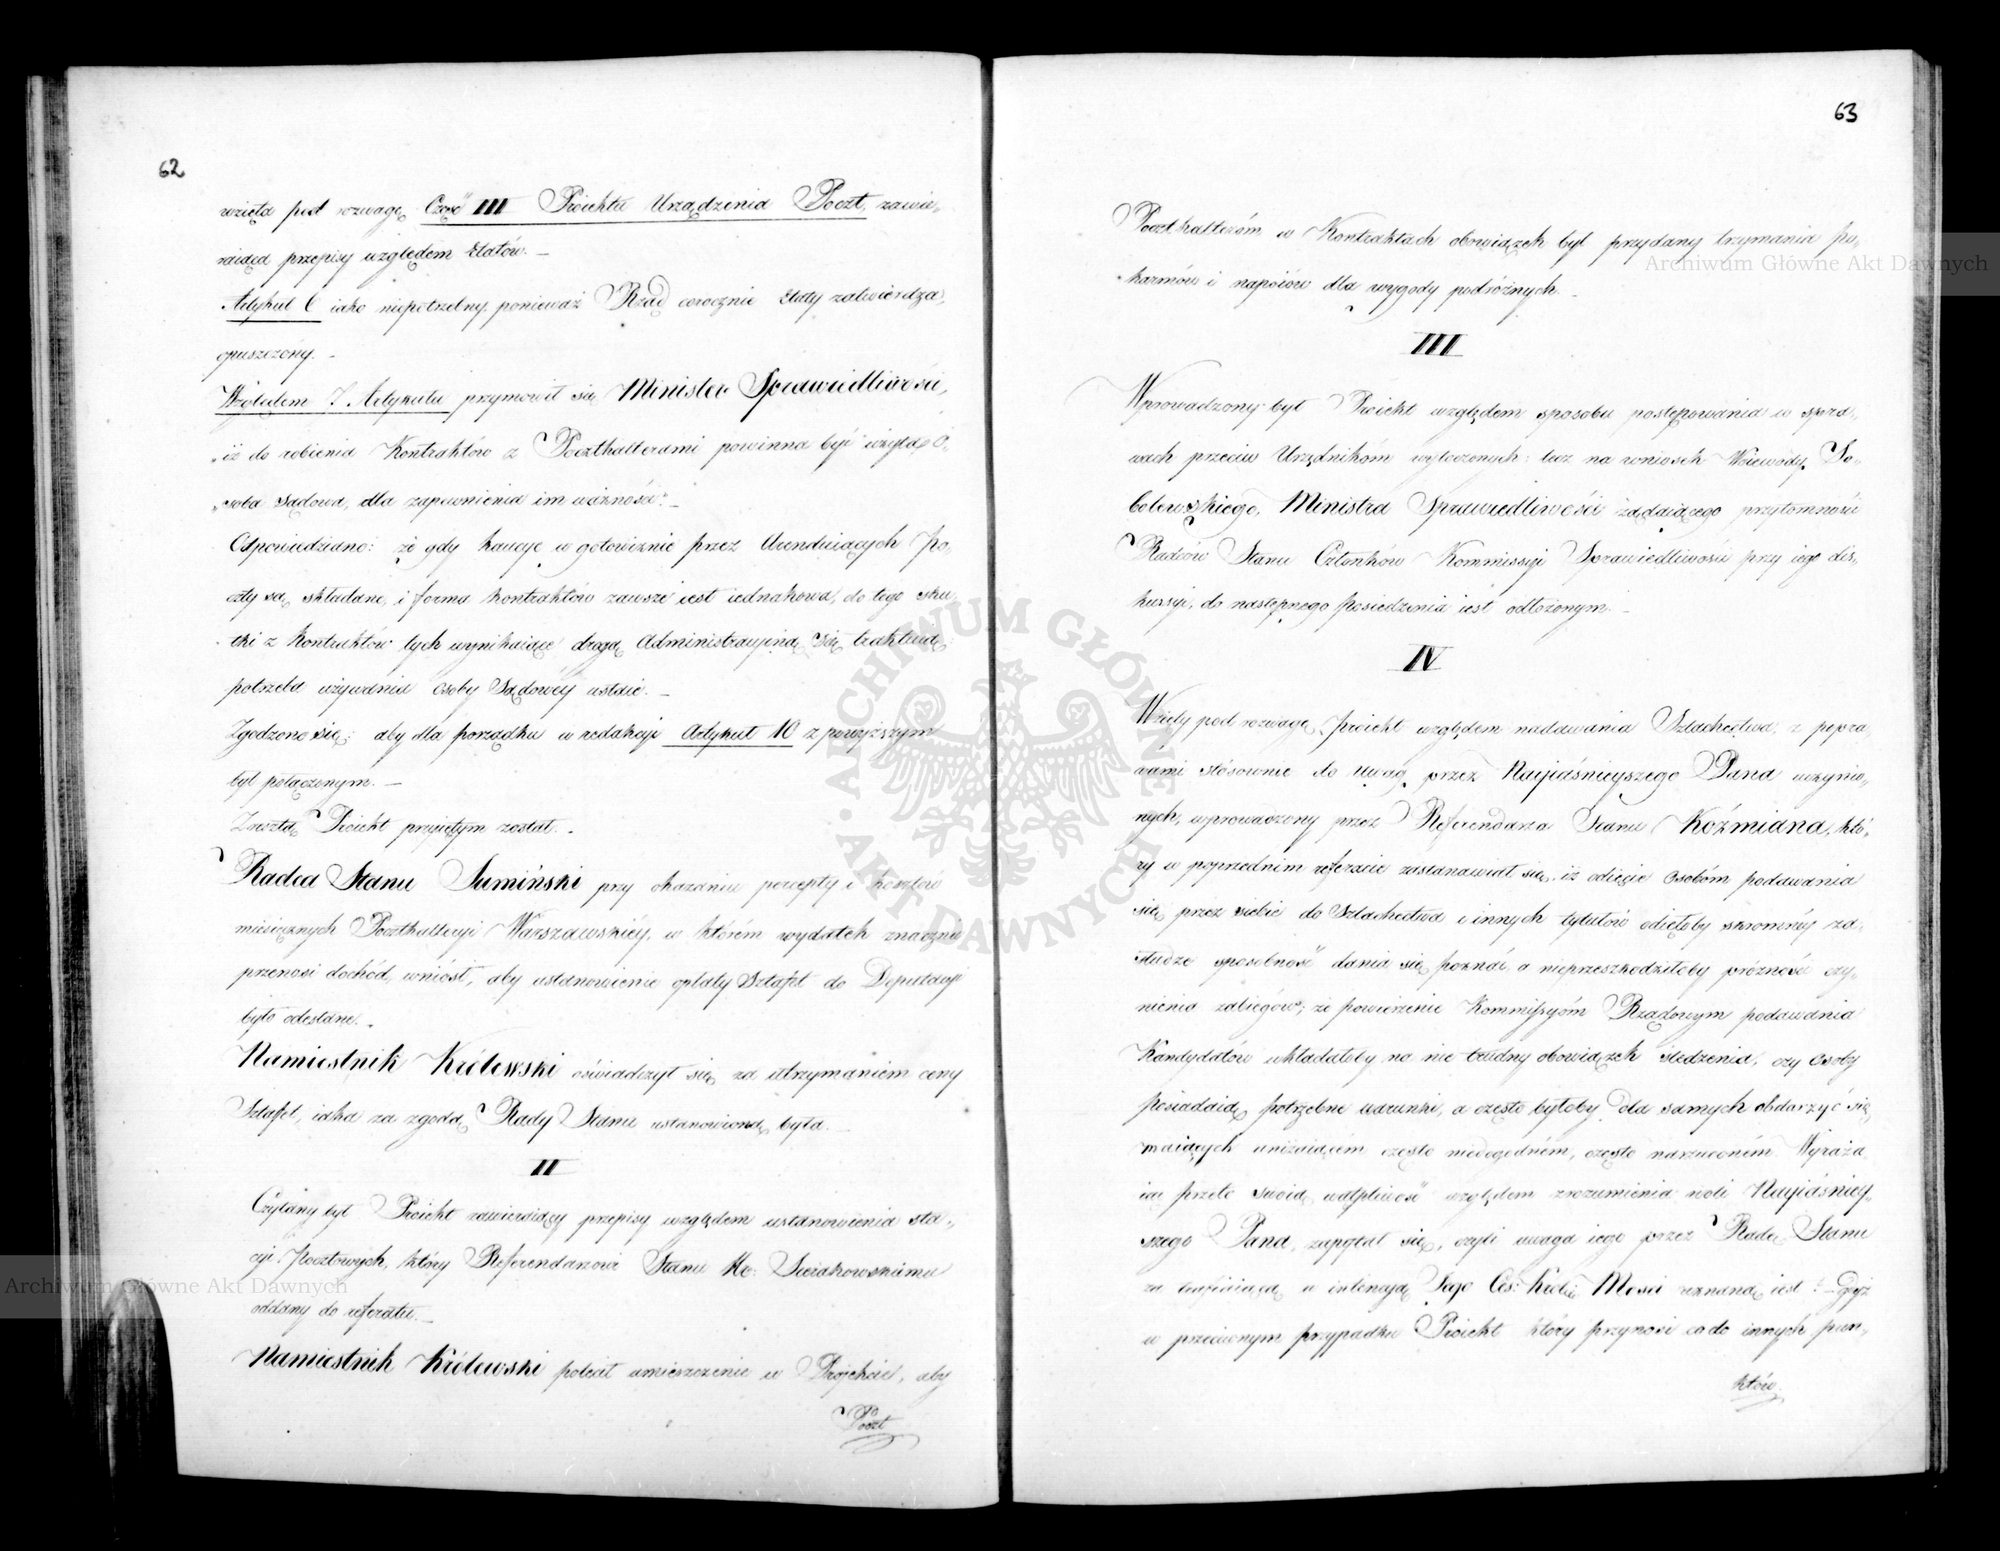 62
wzięta pod rozwagę Część III Proiektu Urządzenia Poczt, zawie-
raiąca przepisy względem Etatów. –
Artykuł 6 iako niepotrzebny, ponieważ Rząd corocznie Etaty zatwierdza,
opuszczony. –
Względem 7 Artykułu przymówił się Minister Sprawiedliwości,
„iż do robienia Kontraktów z Poczthalterami powinna być użytą O-
„soba Sądowa, dla zapewnienia im ważności". –
Odpowiedziano: że gdy kaucye w gotowiznie przez Arenduiących Po-
czty są składane, i forma kontraktów zawsze iest iednakowa, do tego sku-
tki z kontraktów tych wynikaiące drogą Administracyiną się traktuią;
potrzeba używania osoby Sądowéy ustaie. –
Zgodzono się: aby dla porządku w redakcyi Artykuł 10 z powyższym
był połączonym. –
Zresztą Proiekt przyiętym został. –
Radca Stanu Sumiński przy okazaniu percepty i kosztów
miesięcznych Poczthalteryi Warszawskiéy, w którém wydatek znacznie
przenosi dochód, wniósł, aby ustanowienie opłaty Sztafet do Deputacyi
było odesłane. –
Namiestnik Królewski oświadczył się za utrzymaniem ceny
Sztafet, iaka za zgodą Rady Stanu ustanowioną była. –
II
Czytany był Proiekt zawieraiący przepisy względem ustanowienia sta-
cyi Pocztowych, który Referendarzowi Stanu Hr: Sierakowskiemu
oddany do referatu. –
Namiestnik Królewski polecił umieszczenie w Projekcie, aby
Poczt
63
Poczthalteróm w Kontraktach obowiązek był przydany trzymania po-
karmów i napoiów dla wygody podróżnych. –
III
Wprowadzony był Proiekt względem sposobu postępowania w spra-
wach przeciw Urzędnikóm wytoczonych; lecz na wniosek Woiewody So-
bolewskiego, Ministra Sprawiedliwości żądaiącego przytomności
Radców Stanu Członków Kommissyi Sprawiedliwości przy iego dis-
kursyi, do następnego posiedzenia iest odłożonym. –
IV
Wzięty pod rozwagę proiekt względem nadawania Szlachectwa, z popra-
wami stósownie do uwag przez Nayiaśnieyszego Pana uczynio-
nych, wprowadzony przez Referendarza Stanu Koźmiana, któ-
ry w poprzednim referacie zastanawiał się, iż odięcie Osobóm podawania
się przez siebie do Szlachectwa i innych tytułów odięłoby skromnéy za-
słudze sposobność dania się poznać, a nieprzeszkodziłoby próżności czy-
nienia zabiegów; że powierzenie Kommissyóm Rządowym podawania
Kandydatów wkładałoby na nie trudny obowiązek śledzenia, czy Osoby
posiadaią potrzebne warunki, a często byłoby dla samych obdarzyć się
maiących uniżaiącém często niedogodném, często narzuconém. Wyraża-
iąc przeto swoią wątpliwość względem zrozumienia woli Nayiaśniey-
szego Pana, zapytał się, czyli uwaga iego przez Radę Stanu
za trafiaiącą w intencyą Jego Ces: Król: Mości uznaną iest? Gdyż
w przeciwnym przypadku Proiekt który przynosi co do innych pun-
któw.
Archiwum Główne Akt Dawnych
Archiwum Główne Akt Dawnych
ARCHIWUM GŁÓWNE AKT DAWNYCH